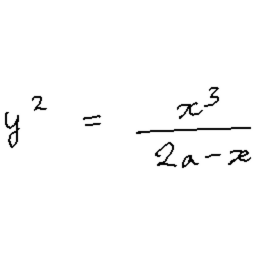 y² = x³/(2a-x)